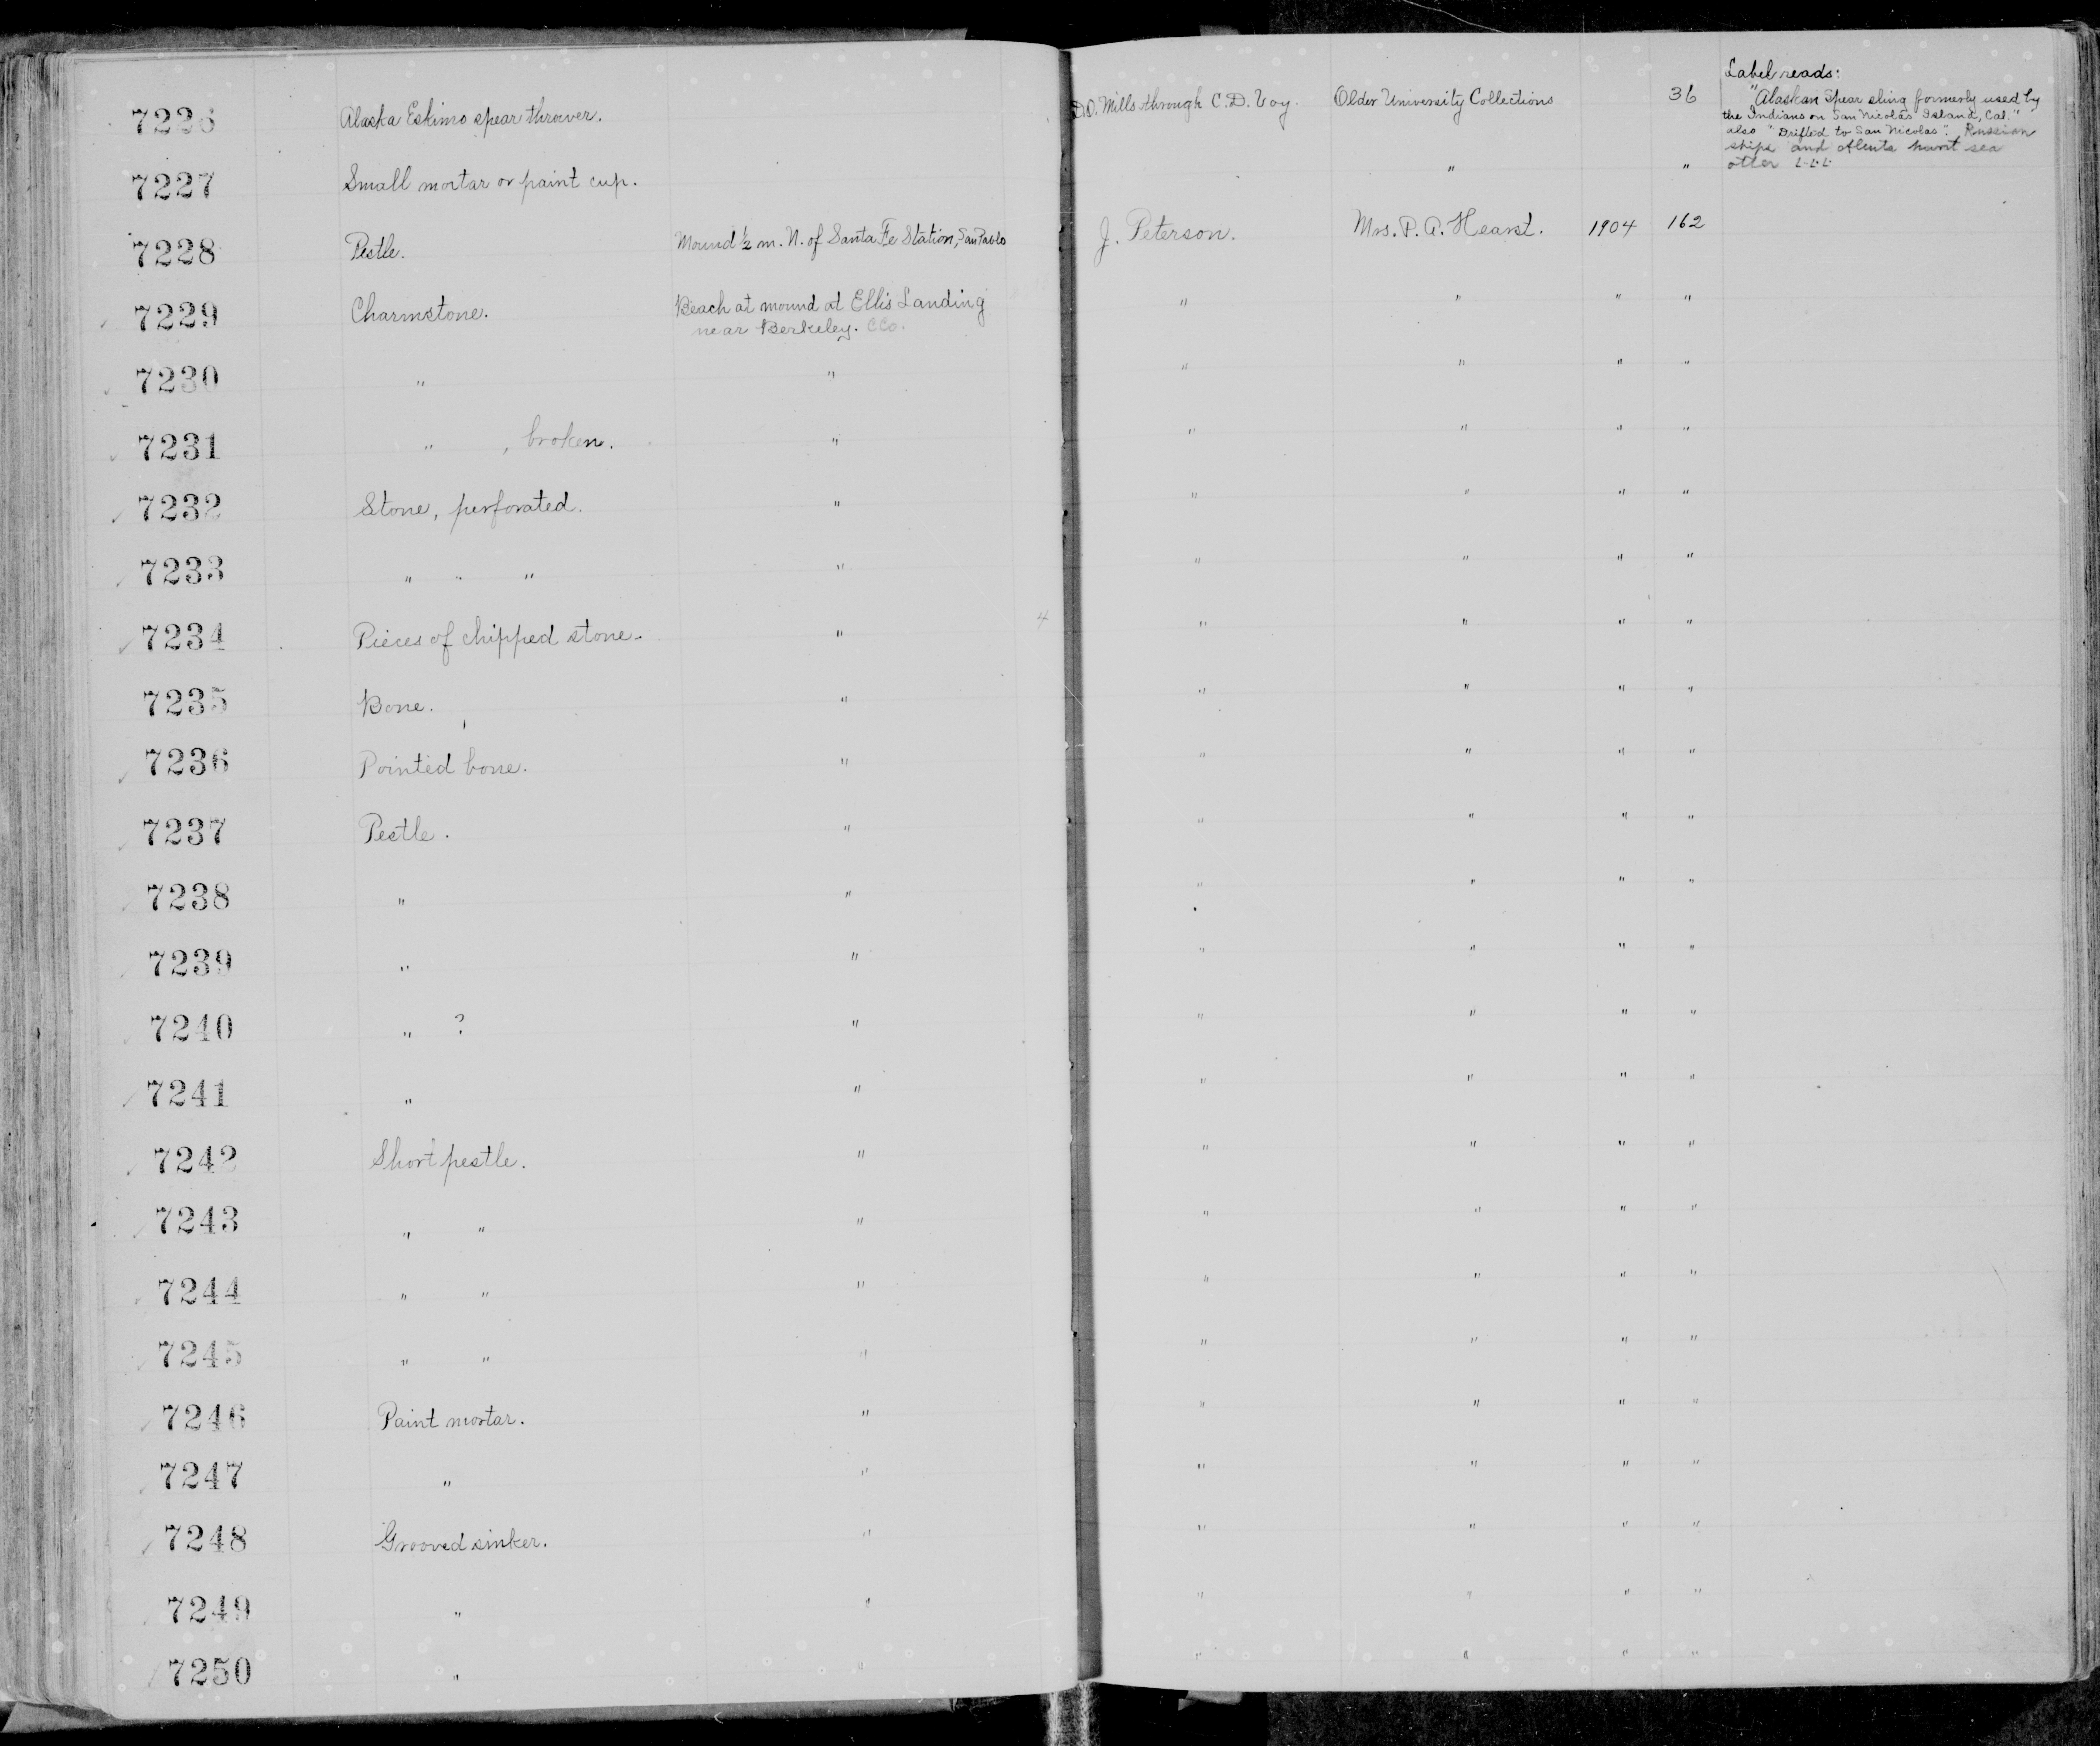 7226 Alaska Eskimo spear thrower. D.O. Mills through C.D. Voy. Older University Collections 36 Label reads:
"Alaskan Spear sling formerly used by
the Indians on San Nicolas Island, Cal."
also "Drifted to San Nicolas". Russian
ships and Aleuts hunt sea
otter
7227 Small mortar or paint cup. " "
7228 Pestle. Mound ½ m. N. of Santa Fe Station, San Pablo J. Peterson. Mrs. P. A. Hearst. 1904 162
7229 Charmstone. Beach at mound at Ellis Landing " " " "
near Berkeley. CCo.
7230 " " " " " "
7231 " , broken. " " " " "
7232 Stone, perforated. " " " " "
7233 " " " " " " " "
7234 Pieces of chipped stone. " 4 " " " "
7235 Bone. " " " " "
7236 Pointed bone. " " " " "
7237 Pestle. " " " " "
7238 " " " " " "
7239 " " " " " "
7240 " ? " " " " "
7241 " " " " " "
7242 Short pestle. " " " " "
7243 " " " " " " "
7244 " " " " " " "
7245 " " " " " " "
7246 Paint mortar. " " " " "
7247 " " " " " "
7248 Grooved sinker. " " " " "
7249 " " " " " "
7250 " " " " " "